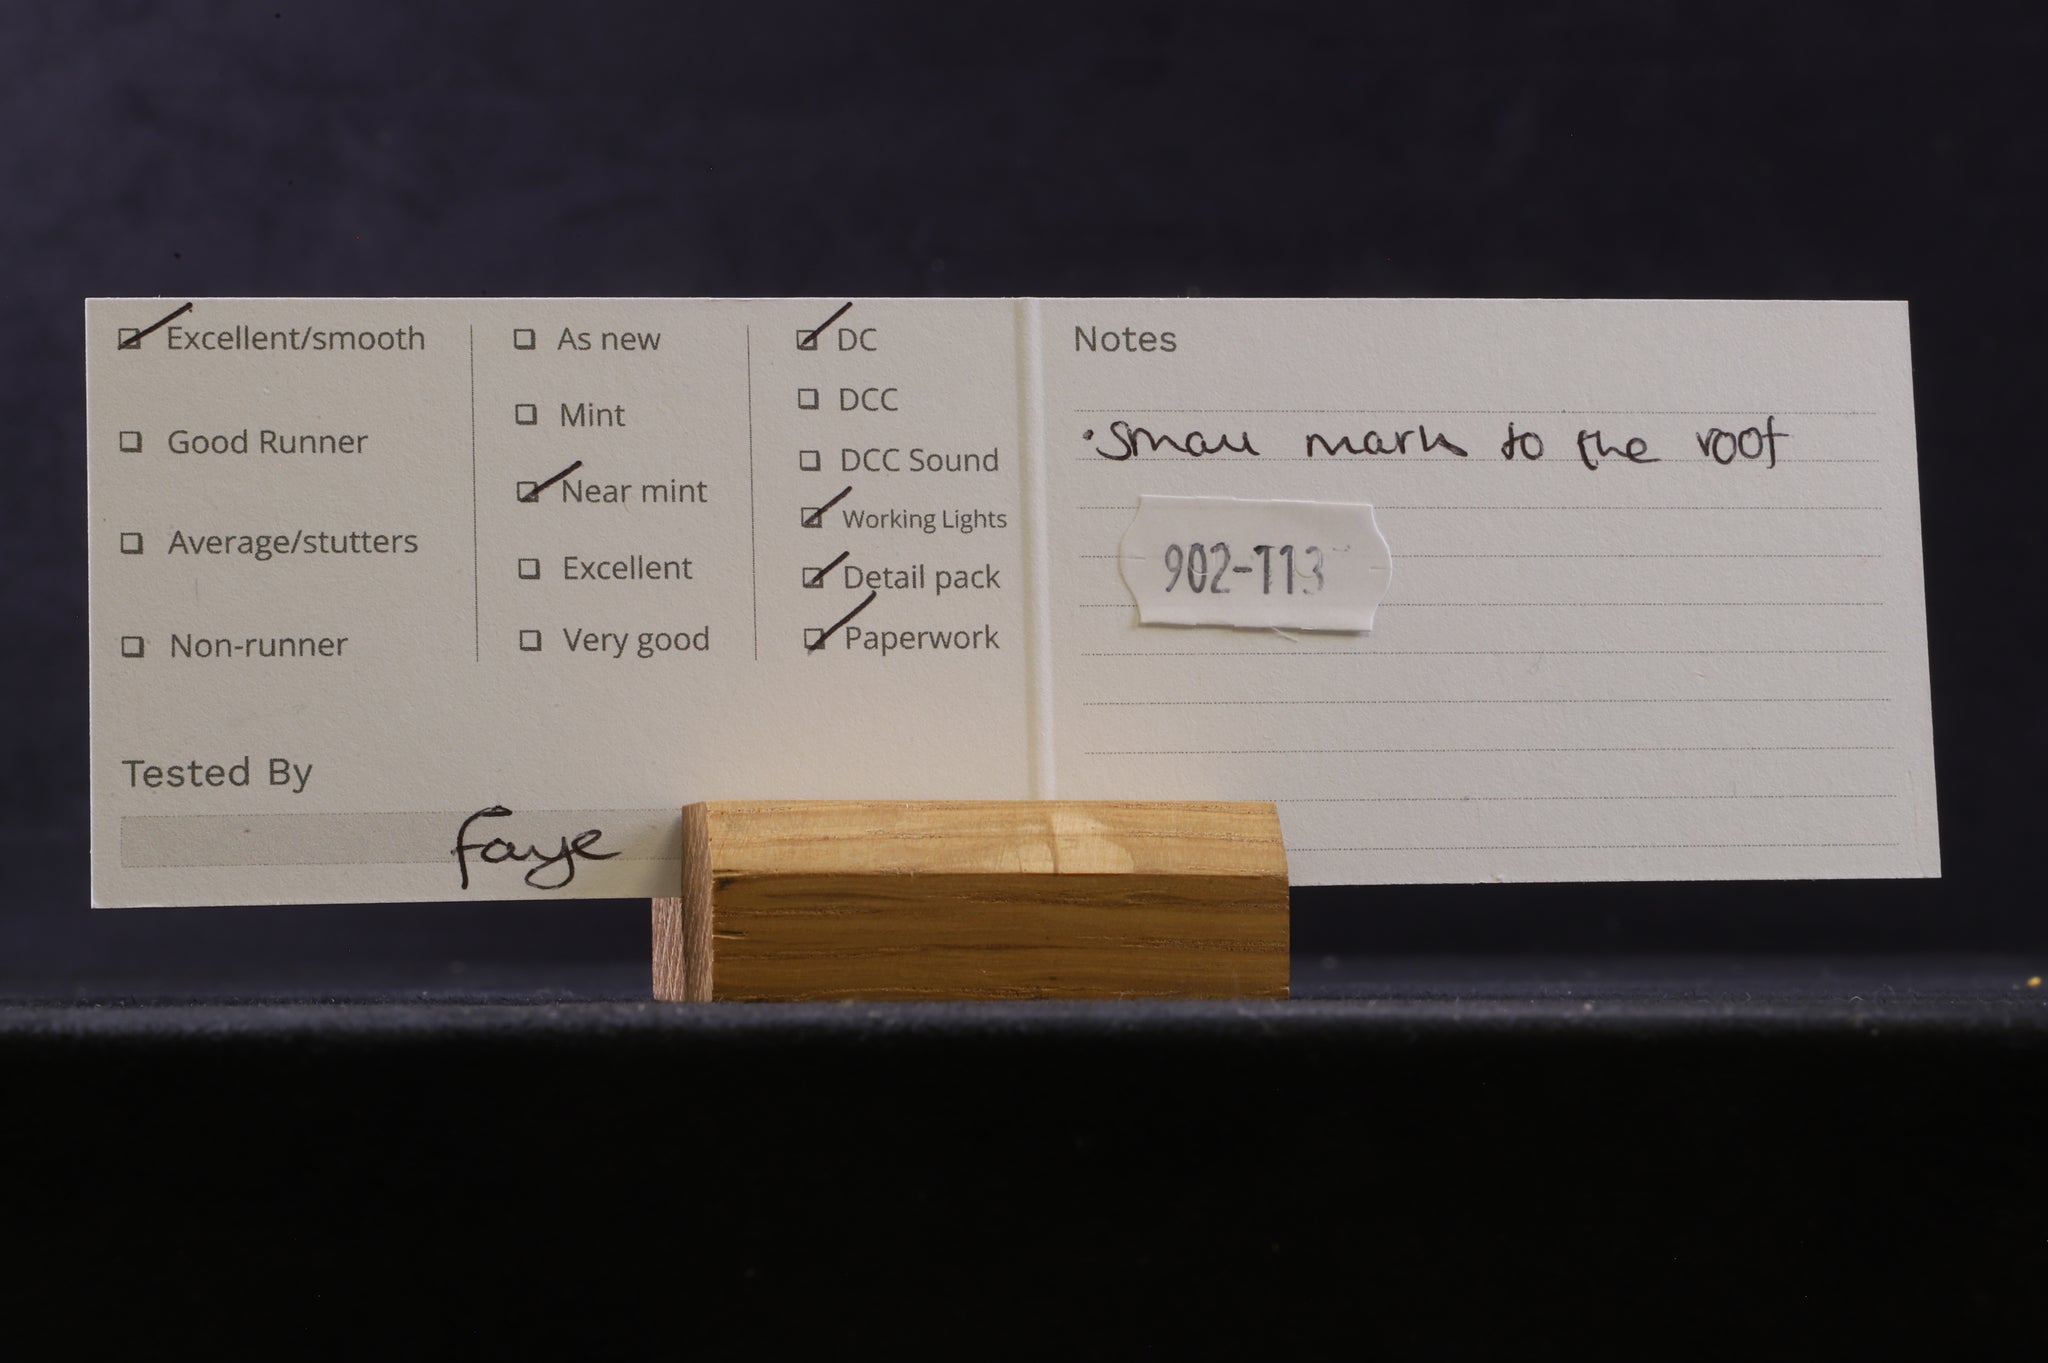 Excellent/smooth
Good Runner
Average/stutters
Non-runner
As new
Mint
Near mint
Excellent
Very good
DC
DCC
DCC Sound
Working Lights
Detail pack
Paperwork
Tested By
Faye
Notes
• Small mark to the roof
902-T13